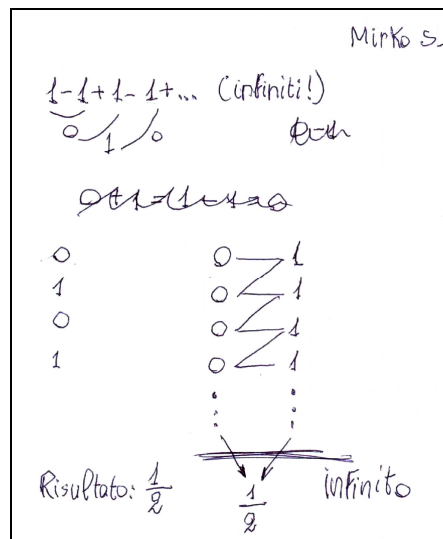 Mirko S.
1-1+1-1+... (infiniti!)
0 1 0
0 0 1
1 0 1
0 0 1
1 0 1
Risultato: 1/2 1/2 infinito